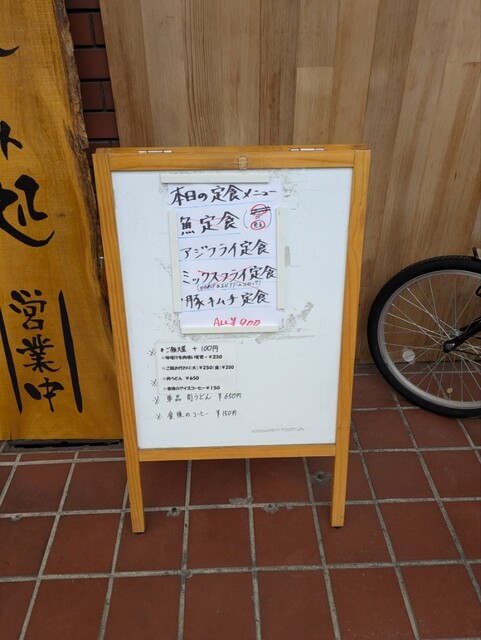 処
営業中
本日の定食メニュー
魚定食
アジフライ定食
ミックスフライ定食
豚キムチ定食
ALL¥900
※ ★ご飯大盛 +100円
※ ※肉うどん ¥650
※食後のアイスコーヒー¥150
※ 単品 肉うどん ¥650円
※ 食後のコーヒー ¥150円